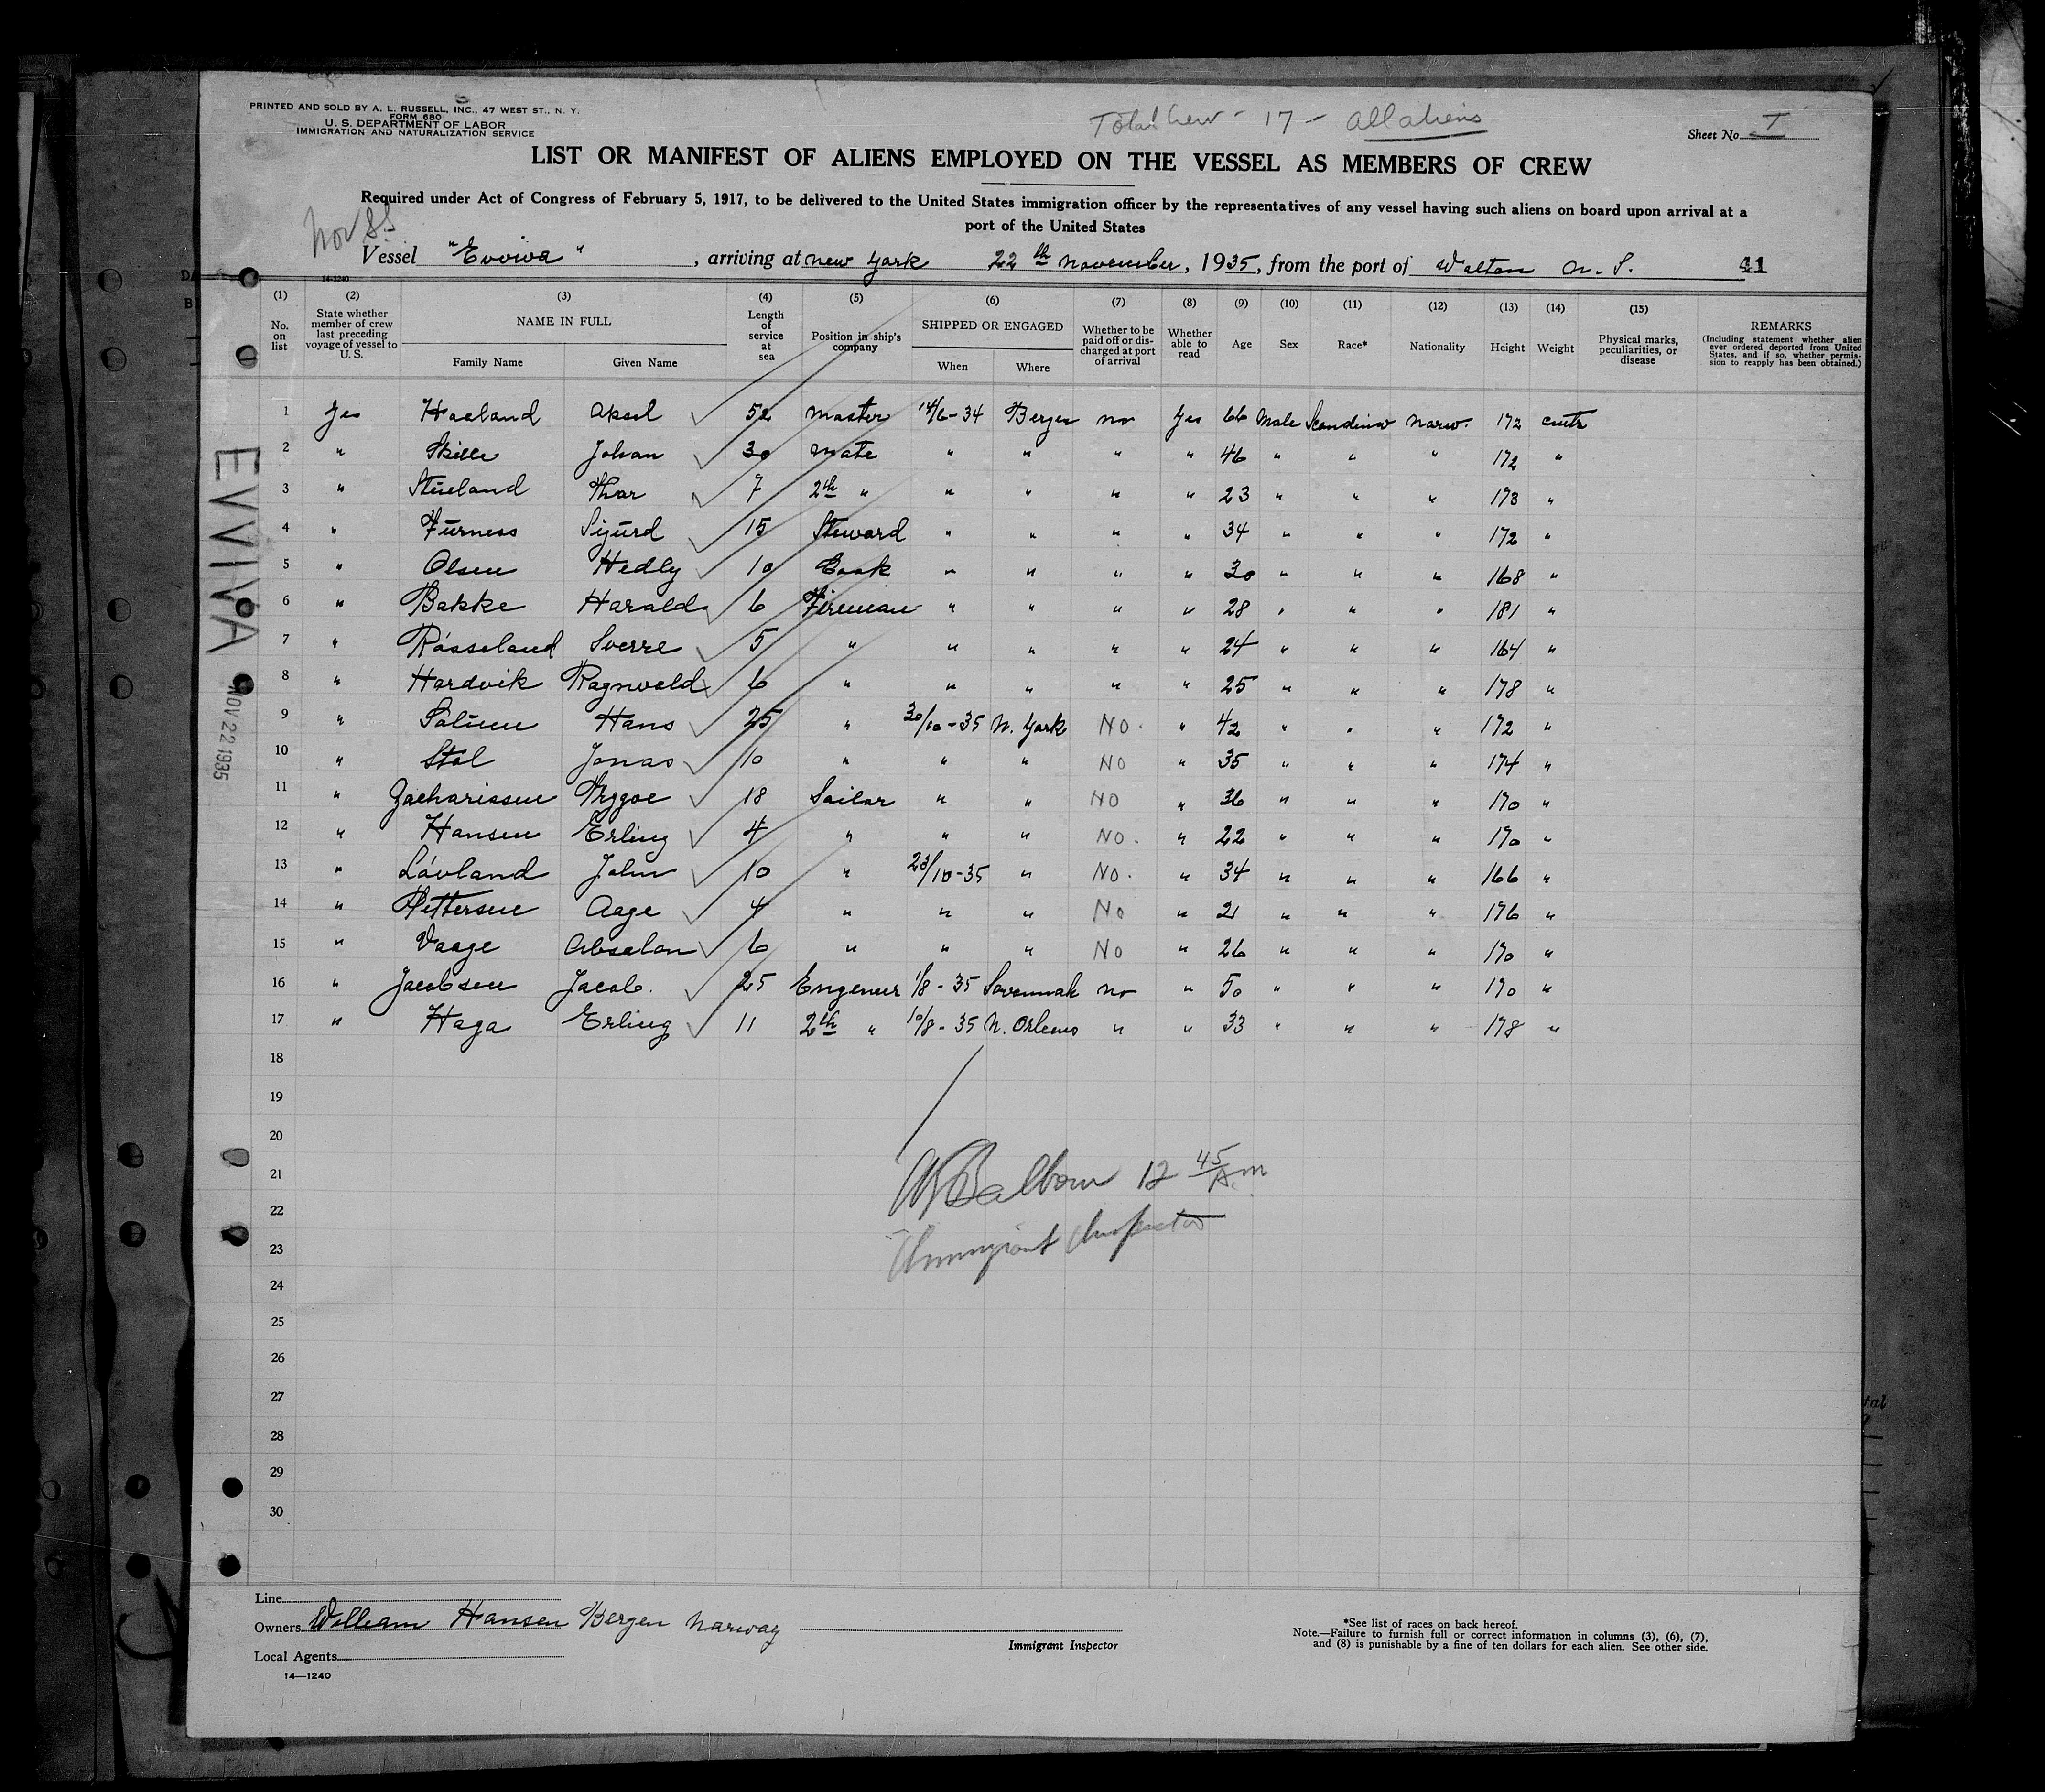 PRINTED AND SOLD BY A. L. RUSSELL, INC., 47 WEST ST., N. Y.
FORM 680
U. S. DEPARTMENT OF LABOR
IMMIGRATION AND NATURALIZATION SERVICE
Total Crew - 17 - all aliens
Sheet No. I
LIST OR MANIFEST OF ALIENS EMPLOYED ON THE VESSEL AS MEMBERS OF CREW
Required under Act of Congress of February 5, 1917, to be delivered to the United States immigration officer by the representatives of any vessel having such aliens on board upon arrival at a
port of the United States
Nor SS
Vessel "Evviva", arriving at new york 22th november, 1935, from the port of Walton n. S. 41
14-1240
(1) (2) (3) (4) (5) (6) (7) (8) (9) (10) (11) (12) (13) (14) (15)
No. on list State whether member of crew last preceding voyage of vessel to U. S. NAME IN FULL Family Name Given Name Length of service at sea Position in ship's company SHIPPED OR ENGAGED When Where Whether to be paid off or discharged at port of arrival Whether able to read Age Sex Race* Nationality Height Weight Physical marks, peculiarities, or disease REMARKS (Including statement whether alien ever ordered deported from United States, and if so, whether permission to reapply has been obtained.)
1 Yes Haaland Aksel 52 master 14/6-34 Bergen no Yes 66 Male Scandinav narw. 172 cmtr
2 " Skille Johan 30 mate " " " " 46 " " " 172 "
3 " Stueland Thor 7 2th " " " " " 23 " " " 173 "
4 " Furness Sigurd 15 Steward " " " " 34 " " " 172 "
5 " Olsen Hedly 10 Cook " " " " 30 " " " 168 "
6 " Bakke Harald 6 Fireman " " " " 28 " " " 181 "
7 " Rósseland Sverre 5 " " " " " 24 " " " 164 "
8 " Hardvik Ragnvald 6 " " " " " 25 " " " 178 "
9 " Hans 25 " 30/10-35 N. York NO. " 42 " " " 172 "
10 " Stol Jonas 10 " " " NO " 35 " " " 174 "
11 " Zachariassen Trygve 18 Sailor " " NO " 36 " " " 170 "
12 " Hansen Erling 4 " " " NO. " 22 " " " 170 "
13 " Lóvland John 10 " 23/10-35 " NO. " 34 " " " 166 "
14 " Pettersen Aage 4 " " " No " 21 " " " 176 "
15 " Vaage Absalon 6 " " " No " 26 " " " 170 "
16 " Jacobsen Jacob. 25 Engeneer 1/8-35 Savannah no " 50 " " " 170 "
17 " Haga Erling 11 2th " 10/8-35 N. Orleans " " 33 " " " 178 "
18
19
20
21
22
23
24
25
26
27
28
29
30
12 45 Am
Immigrant Inspector
EVVIVA
NOV 22 1935
Line
Owners William Hansen Bergen Narway
Local Agents
14—1240
Immigrant Inspector
*See list of races on back hereof.
Note.—Failure to furnish full or correct information in columns (3), (6), (7),
and (8) is punishable by a fine of ten dollars for each alien. See other side.